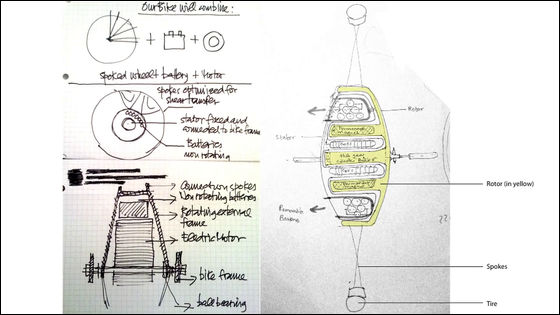 Our Bike will combine:
spoked wheel + battery + Motor
spokes optimized for
shear transfer
stator fixed and
connected to bike frame
Batteries
non rotating
Connection spokes
Non rotating batteries
Rotating external
frame
Electric Motor
bike frame
ball bearing
Rotor
Stator
Permanent
magnets
Coils
Coils
Permanent
Removable
Batteries
Rotor (in yellow)
Spokes
Tire